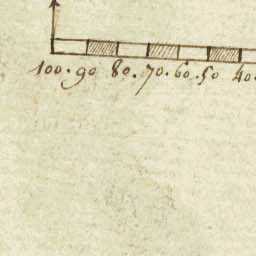 100. 90 80. 70. 60. 50 40.